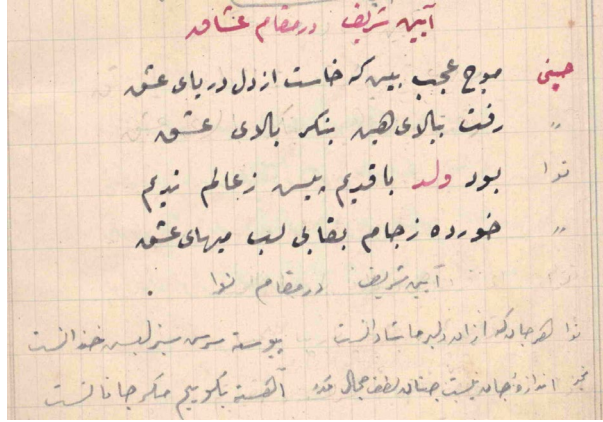 آیین شریف درمقام عشاق
حسینی موج عجب بین که خاست از دل دریای عشق
〃 رفت ببالای هین بنکر بالای عشق
نوا بود ولد با قدیم پیس زعالم ندیم
〃 خورده زجام بقا بی لب میهای عشق
آیین شریف درمقام نوا
نوا هر جان که از ان دلبر ما شادانست پیوسته سرش سبز لبش خندانست
اندازهٔ جان نیست چنان لطف جمال آهسته بکوییم مکر جانانست